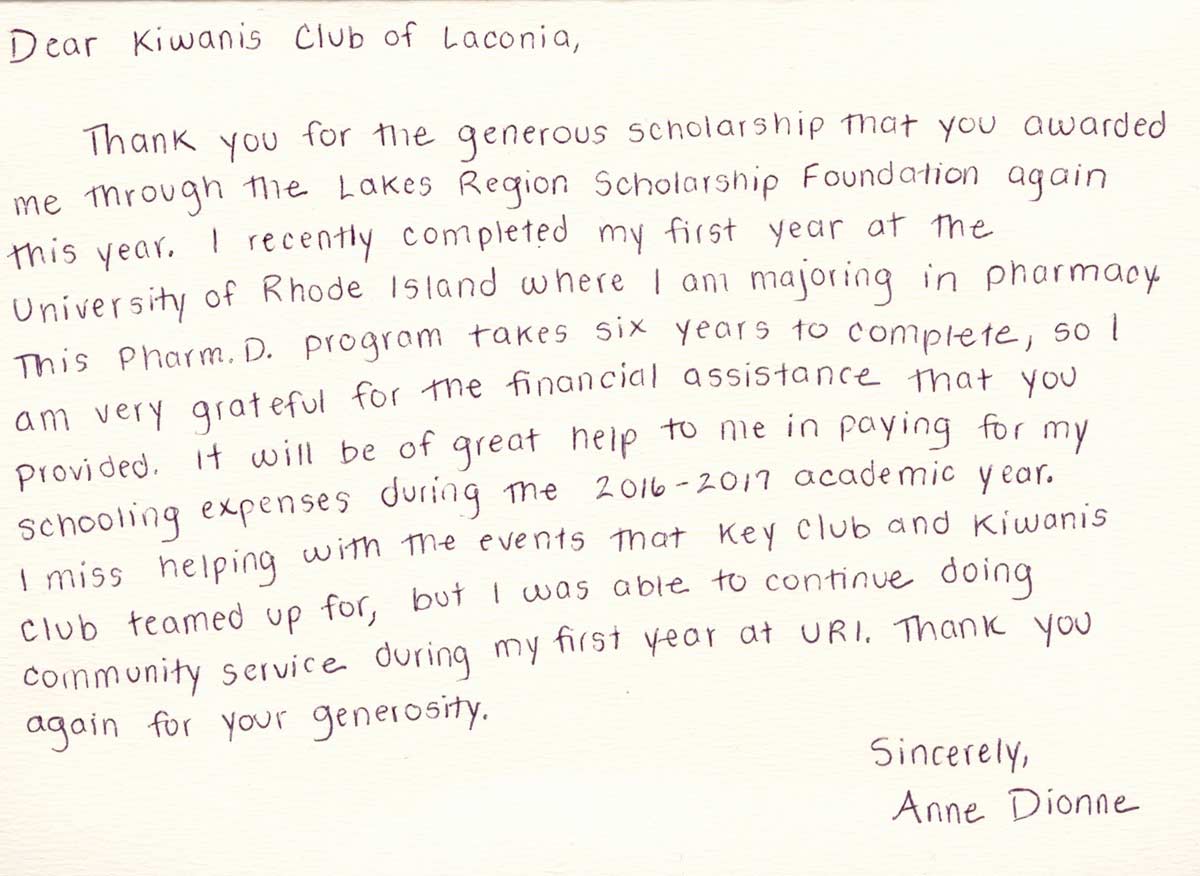 Dear Kiwanis Club of Laconia,
Thank you for the generous scholarship that you awarded
me through the Lakes Region Scholarship Foundation again
this year. I recently completed my first year at the
University of Rhode Island where I am majoring in pharmacy
This Pharm. D. program takes six years to complete, so I
am very grateful for the financial assistance that you
provided. It will be of great help to me in paying for my
schooling expenses during the 2016-2017 academic year.
I miss helping with the events that Key Club and Kiwanis
Club teamed up for, but I was able to continue doing
community service during my first year at URI. Thank you
again for your generosity.
Sincerely,
Anne Dionne